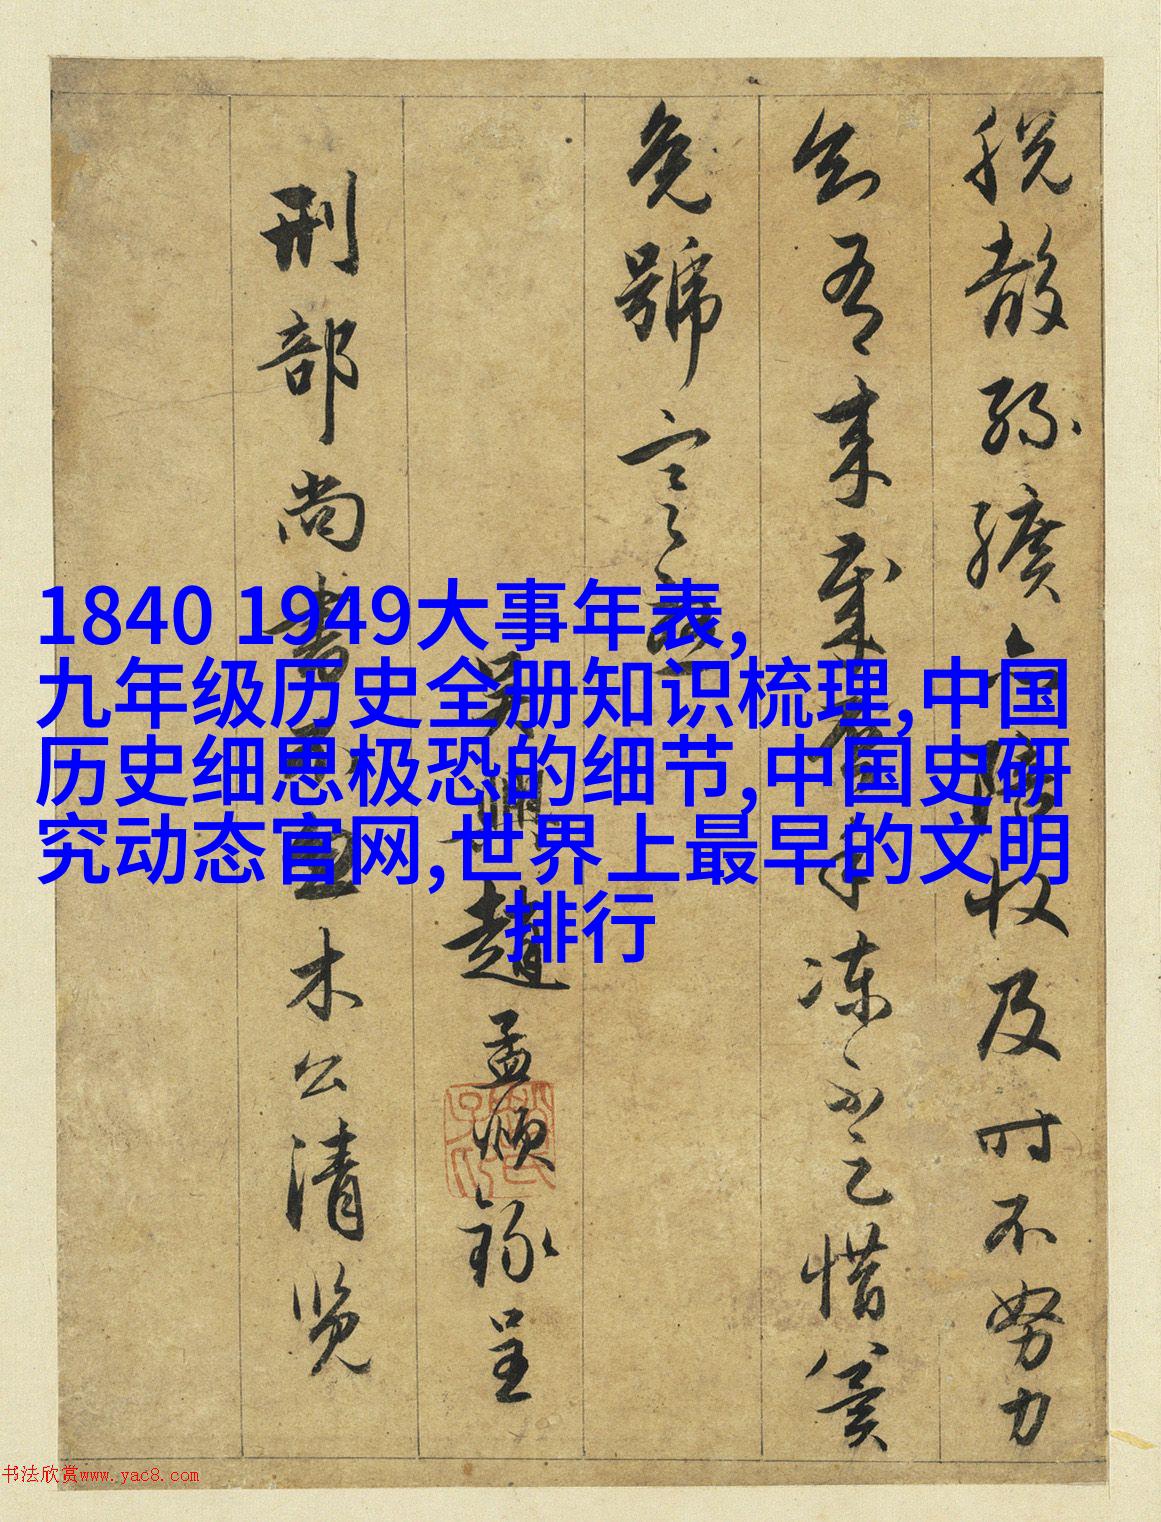 1840 1949大事年表,
九年级历史全册知识梳理,中国
历史细思极恐的细节,中国史研
究动态官网,世界上最早的文明
排行
散絲纊
收及时不努力
来歲
凍
惜
免號
吴興趙孟頫錄呈
刑部尚書
木公清览
书法欣赏www.yac8.com